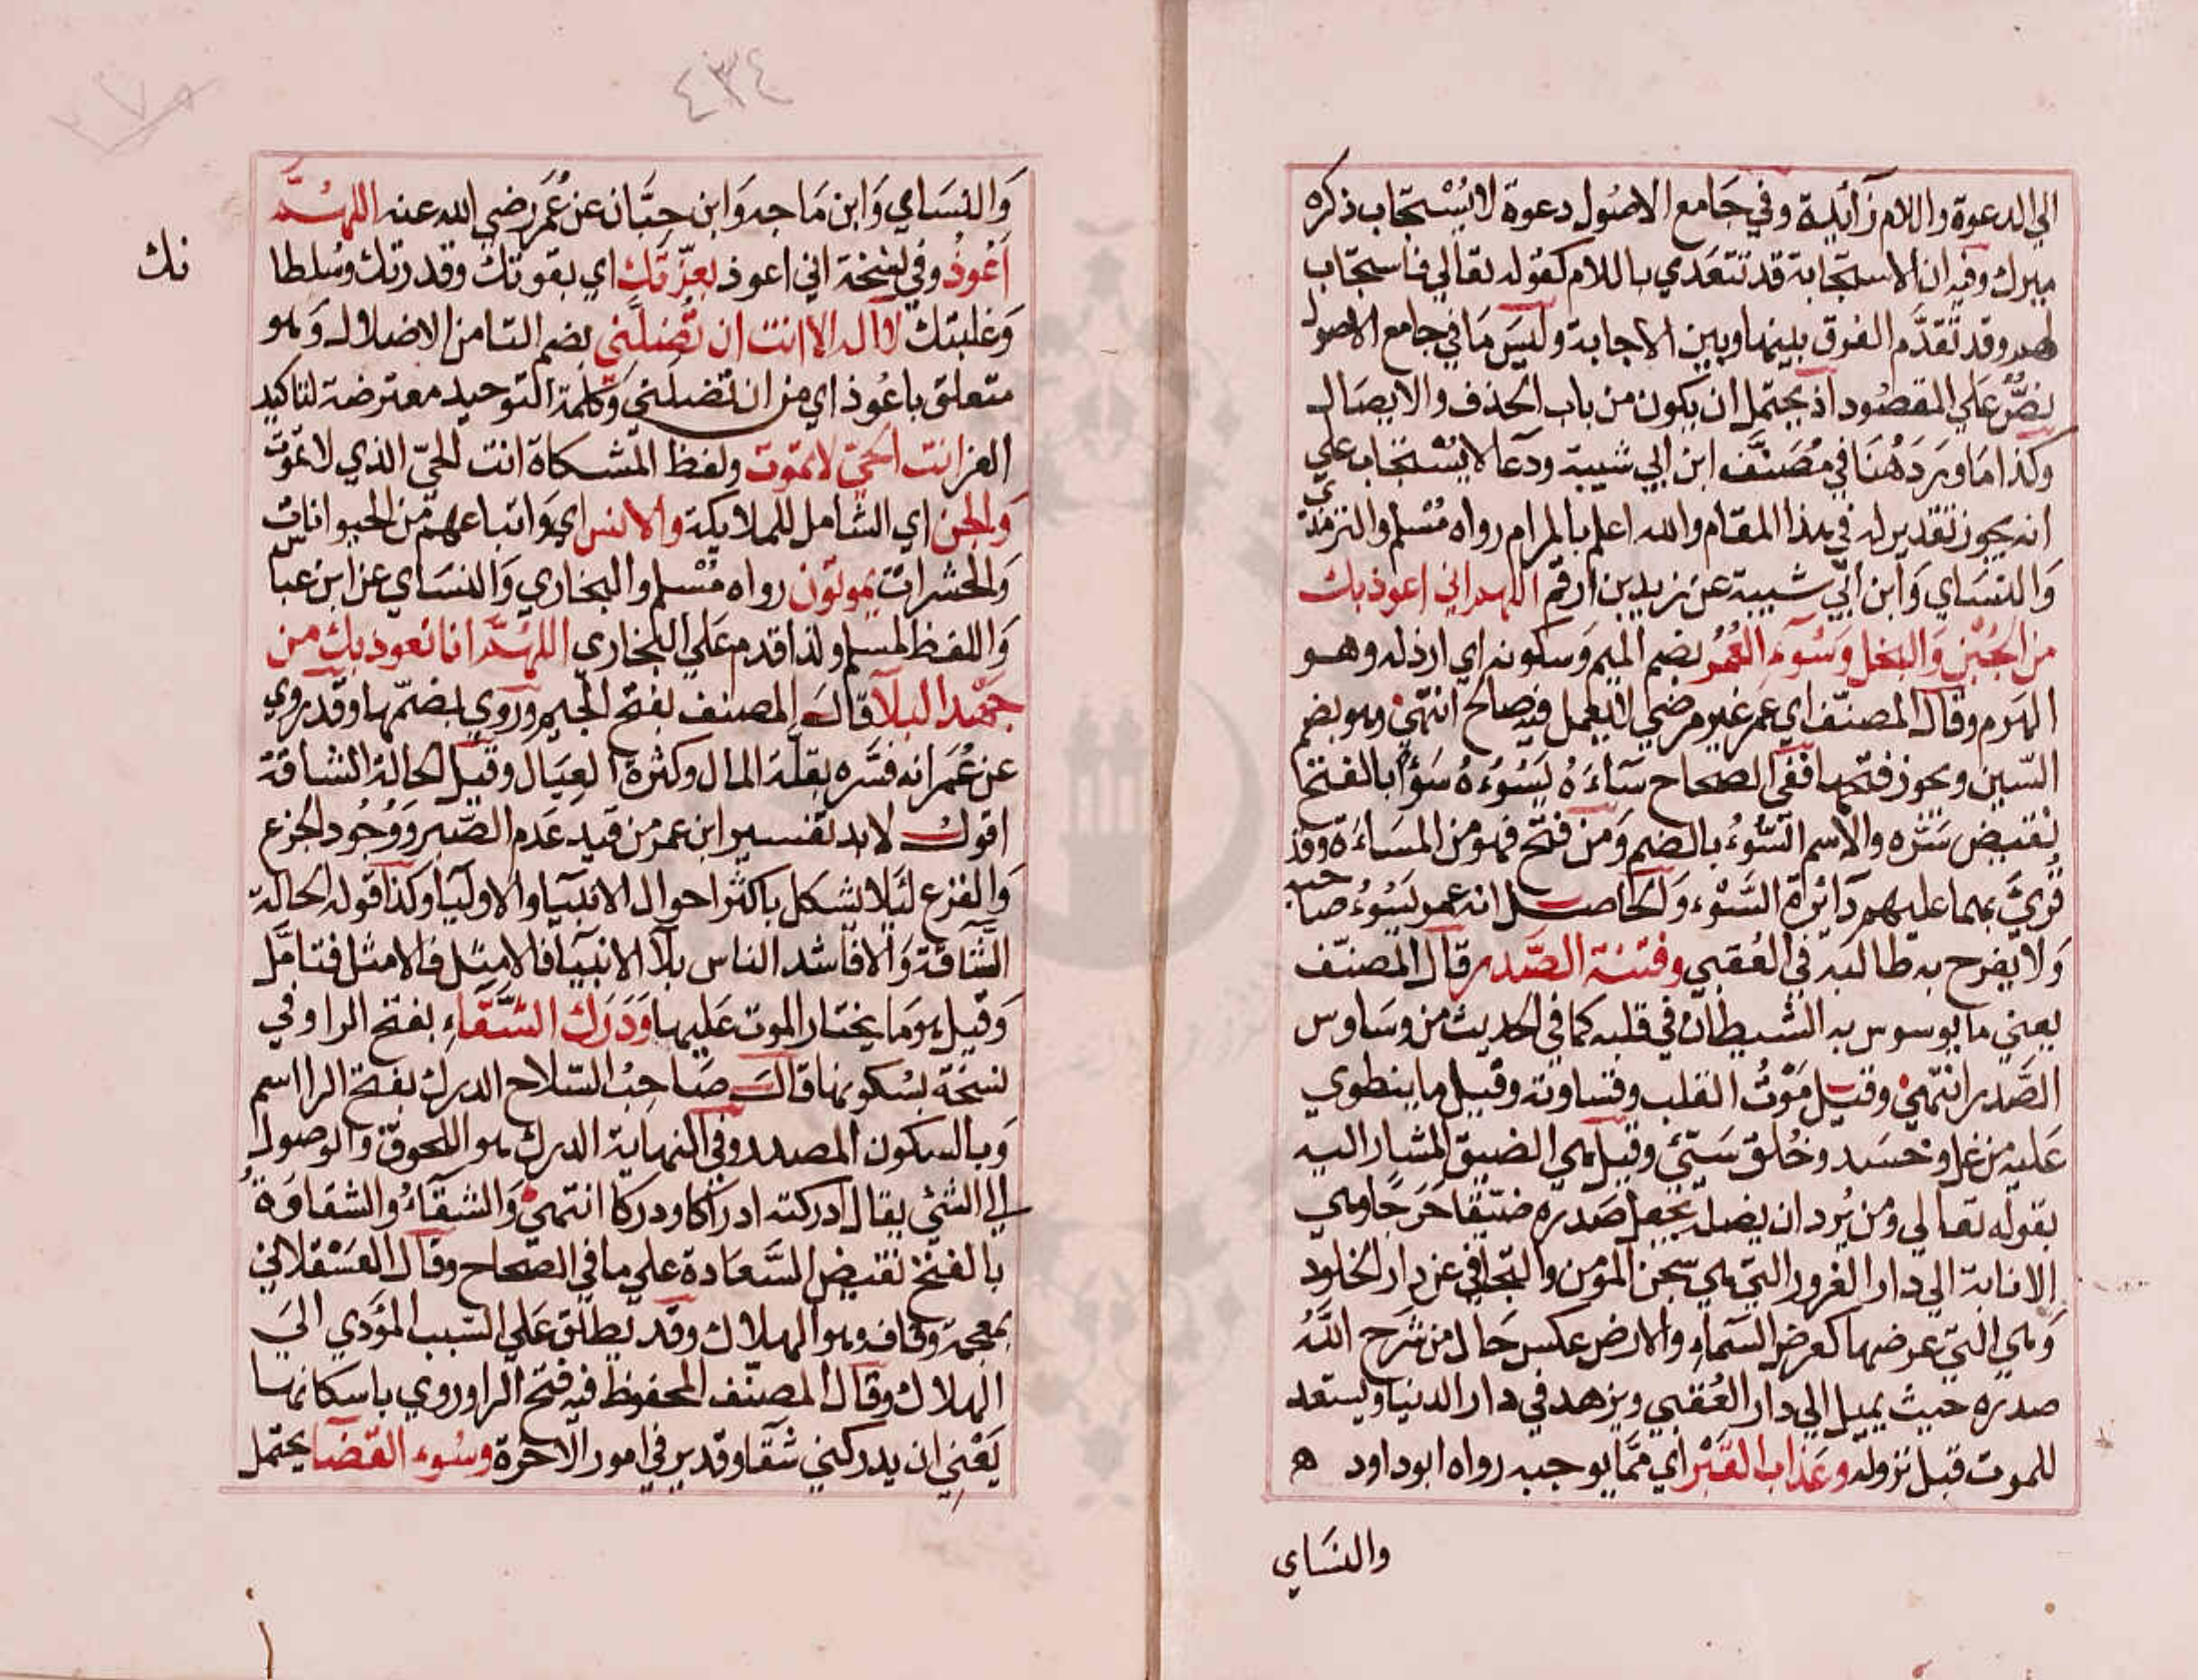 الي الدعوة واللام زائدة وفي جَامع الاصُول دعوة لا يُسْتجَاب ذكره
ميرك وفيه ان الاستجابة قد تتعَدي باللام كقوله تعالي فاستجَاب
لهم وقد تقدَّم الفرق بينهما وبين الاجابة وليسَ مَا في جامع الاصول
نصٌّ عَلي المقصُود اذ يحتمل ان يكون من باب الحذف والايصَال
وكذا مَا ورَدَ هُنَا في مُصَنَّف ابن ابي شيبة ودعَا لا يُسْتجَاب علي
انه يجوز تقدير له في هذا المقام والله اعلم بالمرام رواه مُسْلم والترمذي
وَالنسَاي وَابن ابي شيبة عن زيد بن ارقم اللهم اني اعوذ بك
من الجُبْن وَالبخل وَسُوء العُمُر بضم الميم وَسكونه اي ارذله وهو
الهرم وقال المصنّف اي عمر غير مرضي لا يعمل فيه صالح انتهيٰ وهو بضم
السّين ويجوز فتحها ففي الصحاح سآءَهُ يَسُوُءهُ سَوْأً بالفتح
نقيض سَرّه والاسم السُّوُء بالضم وَمن فتح فهو من المسَاءَة وقد
قُرِئَ بهما عليهم دَائرة السَّوْء وَالحَاصل انه عمر يَسُوُءُ صاحبه
وَلا يفرح به طالبه في العُقبي وفتنة الصّدر قال المصنّف
يعني ما يوسوس به الشيطان في قلبه كما في الحديث من وسَاوس
الصَّدر انتهيٰ وقيل مَوْتُ القلب وقساوته وقيل ما ينطوي
عَليه من غل وحسَد وخُلق سَيّئ وقيل هي الضيق المشار اليه
بقوله تعالي وَمن يُرد ان يضله يجعل صَدره ضيّقا حَرَجًا وهي
الانابة الي دار الغرور التي هي سجن المؤمن والتجافي عن دار الخلود
وَهي التي عرضها كعرض السّماءِ والارض عكس حَال من شَرَح اللّهُ
صدره حيث يميل الي دار العُقبي ويزهد في دار الدنيا ويستعد
للموت قبل نزوله وعَذاب القبْر اي ممّا يوجبه رواه ابو داود ه
والنسَاي
٤٣٤
وَالنسَاي وَابن مَاجه وَابن حبَّان عن عُمَر رضي الله عنه اللهُمَّ
اعُوذُ وفي نسْخة اني اعوذ بعزّتك اي بقوتك وقدرتك وسُلطا
نك
وَغلبتك لا اله الا انت ان تُضلَّني بضم التا من الاضلال وَهو
متعلق باعُوذ اي من ان تُضلني وَكلمة التوحيد معترضة لتاكيد
العز انت الحيّ لا يموت ولفظ المشكاة انت الحيّ الذي لا تموت
وَالجن اي الشامل للملايكة والانس اي وَاتباعهم من الحيوانات
وَالحشرات يموتُون رواه مُسْلم والبخاري وَالنسَاي عن ابن عباس
وَاللفظ لمسلم ولذا قدم عَلي البخاري اللهُمَّ انا نعوذ بك من
جَهْد البلآ قالَ المصنف بفتح الجيم ورُوي بضمّها وقد رُوي
عن عُمَر انه فسَّره بقلّة المال وكثرة العِيَال وقيل الحالة الشاقة
اقول لابد لتفسير ابن عمر من قيد عَدم الصّبر وَوُجُود الجزع
وَالفزع لئلا يشكل باكثر احوال الانبيَآ والاوليَا وكذا قوله الحالة
الشّاقة وَالا فاشد الناس بلآً الانبيَا فالامثل فالامثل فتامّل
وَقيل هو مَا يختار الموت عَليها وَدَرَك الشّقَاءِ بفتح الرا وفي
نسخَة بسُكونها قالَ صَاحِبُ السّلاح الدرك بفتح الرا اسم
وَبالسكون المصدر وفي النهاية الدرك هو اللحوق وَالوصول
الي الشئ يقال ادركته ادرَاكا ودركا انتهيٰ وَالشقَآءُ والشقاوَةُ
بالفتح نقيض السَّعَادة علي ما في الصحاح وقال العَسْقلاني
بمعجمة وقاف وهو الهلاك وقد يطلق عَلي السّبب المؤدي الي
الهلاك وقال المصنّف المحفوظ فيه فتح الرا وروي باسكانها
يَعْنِي ان يدركني شقا وقدير في امور الاخرة وسُوء القضَا يحتمل